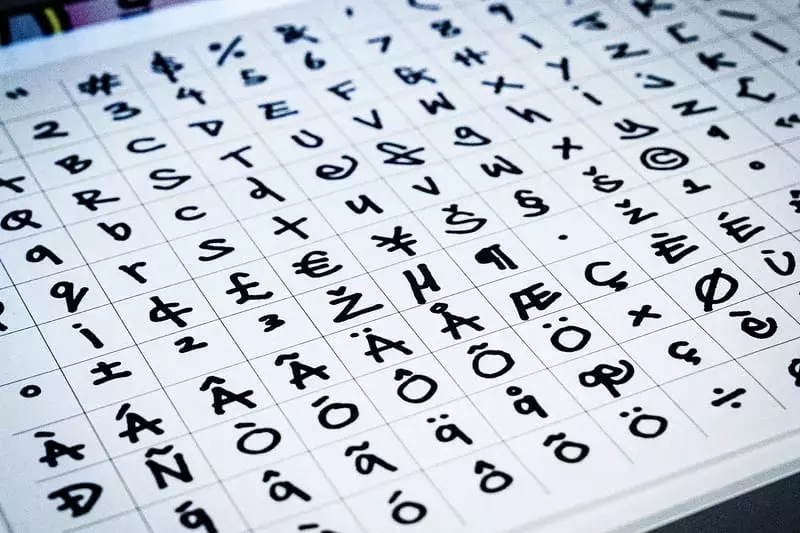 " # $ % &
2 3 4 5 6 7 8 9
B C D E F G H I J K
Q R S T U V W X Y Z [ \
a b c d e f g h i j k l
q r s t u v w x y z {
¡ ¢ £ € ¥ Š § š © ª «
° ± ² ³ Ž µ ¶ · ž ¹ º
À Á Â Ã Ä Å Æ Ç È É
Ð Ñ Ò Ó Ô Õ Ö × Ø Ù
á â ã ä å æ ç è
ó ô õ ö ÷